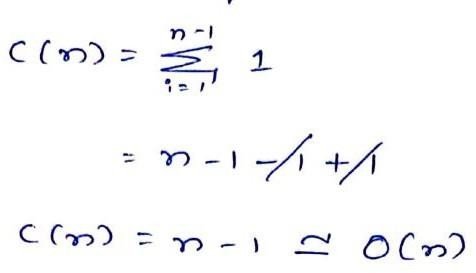 C(n) = n-1 Σ i=1 1
= n - 1 - 1 + 1
C(n) = n - 1 ≃ O(n)